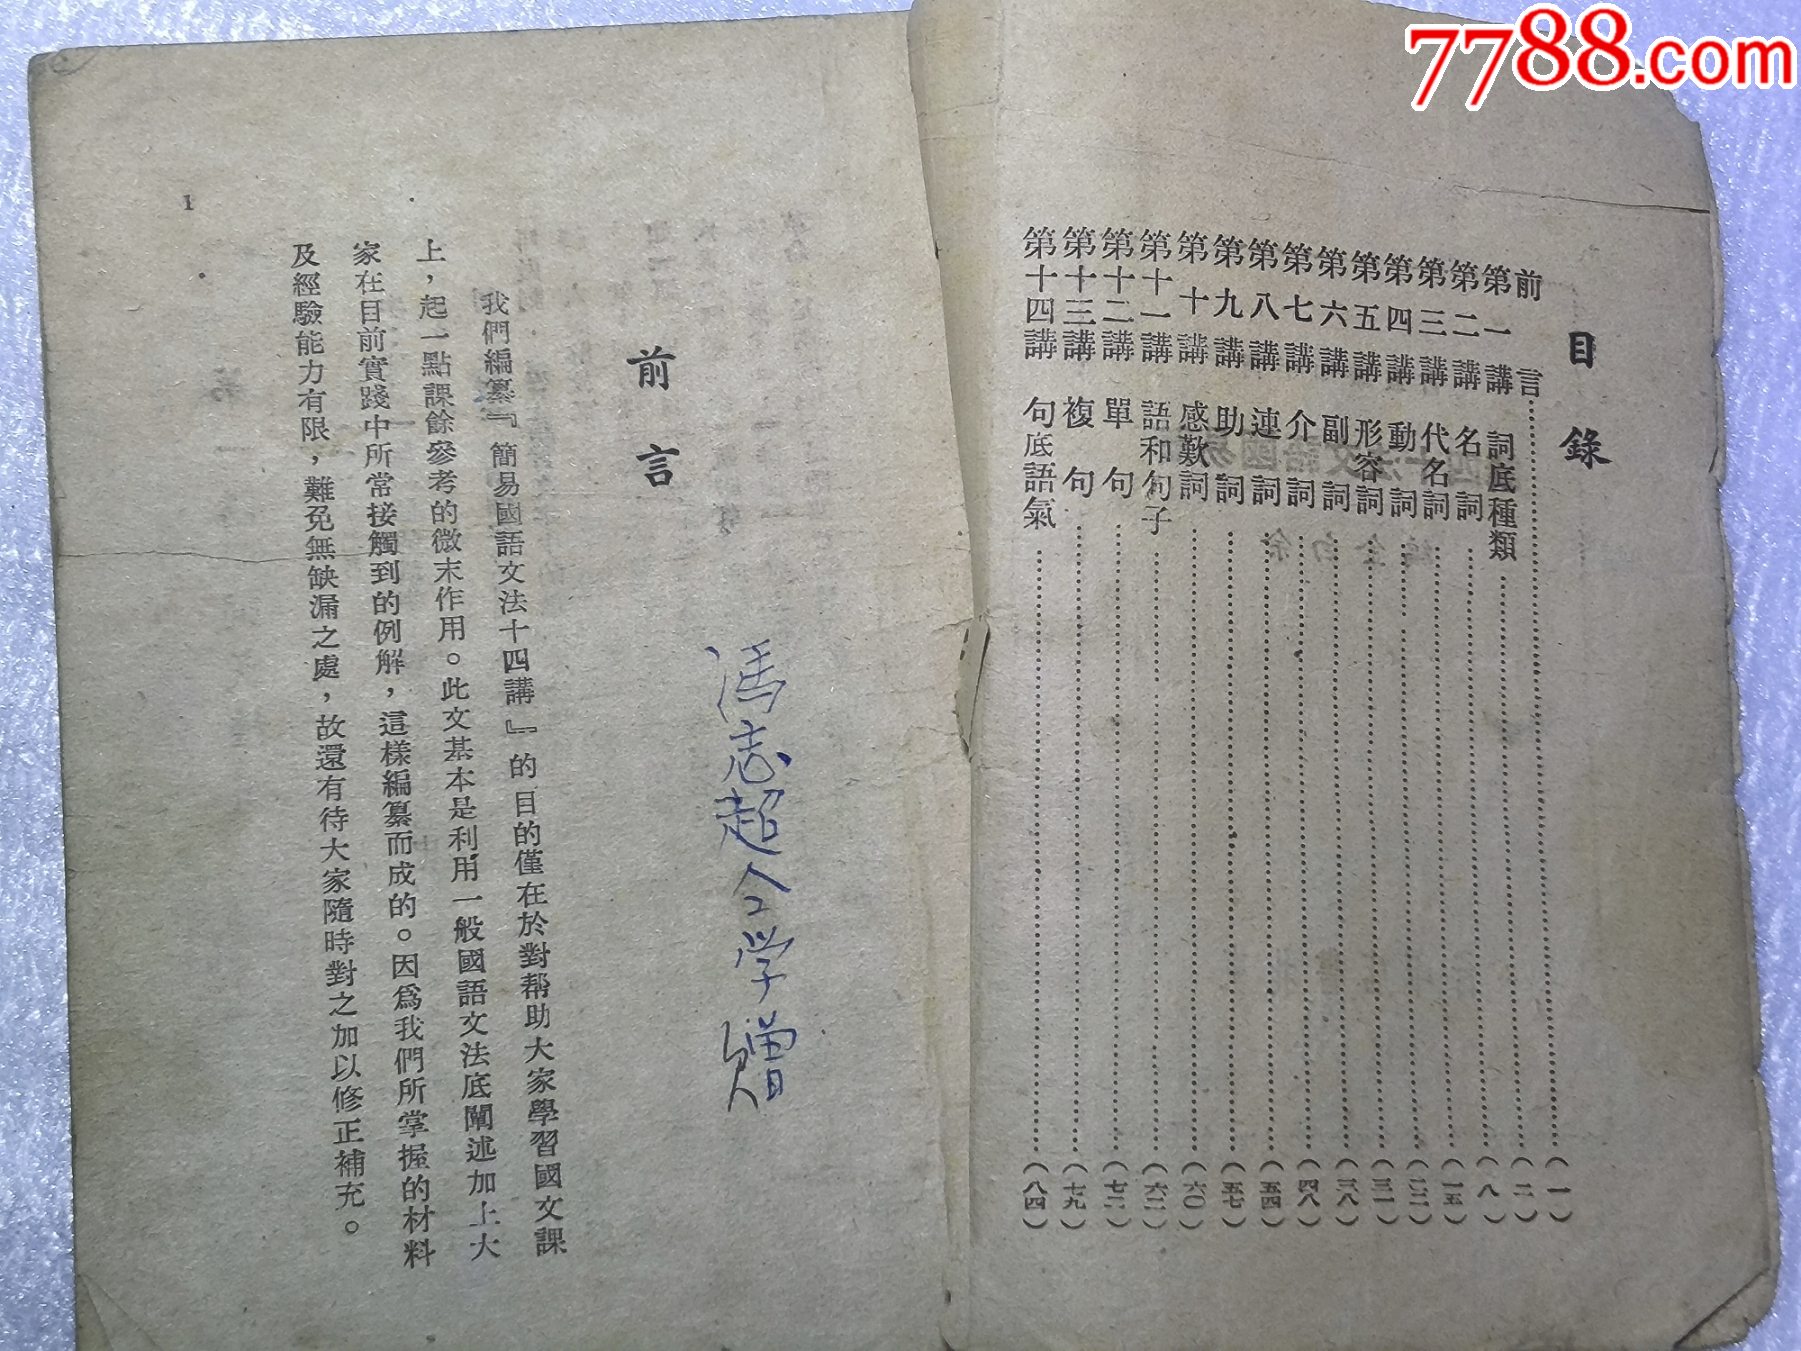 7788.com
目錄
前言……(一)
第一講 詞底種類……(二)
第二講 名詞……(八)
第三講 代名詞……(一五)
第四講 動詞……(二二)
第五講 形容詞……(三一)
第六講 副詞……(三八)
第七講 介詞……(四八)
第八講 連詞……(五四)
第九講 助詞……(五七)
第十講 感歎詞……(六〇)
第十一講 語和句子……(六二)
第十二講 單句……(七二)
第十三講 複句……(七九)
第十四講 句底語氣……(八四)
馮志超仝学贈
前言
我們編纂『簡易國語文法十四講』的目的僅在於對帮助大家學習國文課
上，起一點課餘參考的微末作用。此文基本是利用一般國語文法底闡述加上大
家在目前實踐中所常接觸到的例解，這樣編纂而成的。因爲我們所掌握的材料
及經驗能力有限，難免無缺漏之處，故還有待大家隨時對之加以修正補充。
1